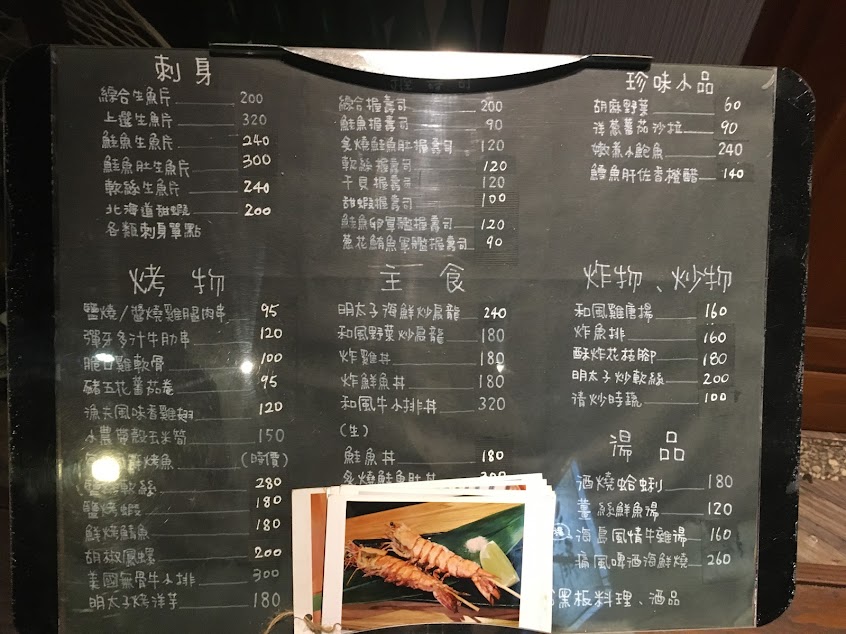 刺身
綜合生魚片 200
上選生魚片 320
鮭魚生魚片 240
鮭魚肚生魚片 300
軟絲生魚片 240
北海道甜蝦 200
各類刺身單點
綜合握壽司 200
鮭魚握壽司 90
炙燒鮭魚肚握壽司 120
軟絲握壽司 120
干貝握壽司 120
甜蝦握壽司 100
鮭魚卵軍艦握壽司 120
蔥花鮪魚軍艦握壽司 90
珍味小品
胡麻野菜 60
洋蔥蕃茄沙拉 90
嫩煮小鮑魚 240
鱈魚肝佐香橙醋 140
烤物
鹽燒/醬燒雞腿肉串 95
彈牙多汁牛肋串 120
脆口雞軟骨 100
豬五花蕃茄卷 95
漁夫風味煮雞翅 120
小農帶殼玉米筍 150
烤魚 (時價)
軟絲 280
鹽烤蝦 180
鮮烤鯖魚 180
胡椒鳳螺 200
美國無骨牛小排 300
明太子烤洋芋 180
主食
明太子海鮮炒烏龍 240
和風野菜炒烏龍 180
炸雞丼 180
炸鮮魚丼 180
和風牛小排丼 320
(生)
鮭魚丼 180
炙燒鮭魚肚丼
炸物、炒物
和風雞唐揚 160
炸魚排 160
酥炸花枝腳 180
明太子炒軟絲 200
清炒時蔬 100
湯品
酒燒蛤蜊 180
薑絲鮮魚湯 120
海島風情牛雜湯 160
痛風啤酒海鮮燒 260
黑板料理、酒品